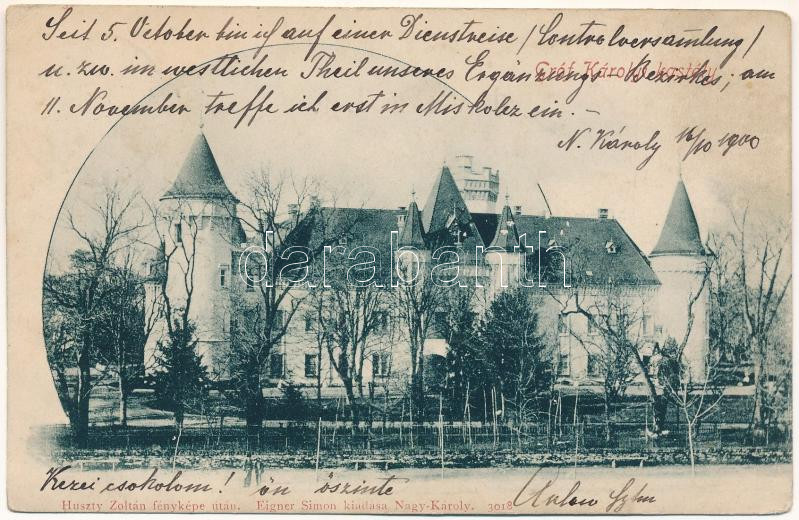 Seit 5. October bin ich auf einer Dienstreise /Controlversamlung/
Gróf Károlyi kastély
u. zw. im westlichen Theil unseres Ergänzungs-Bezirkes; am
11. November treffe ich erst in Miskolcz ein. –
N. Károly 16/10 1900
darabanth
Kezei csokolom! ön öszinte
Huszty Zoltán fényképe után. Eigner Simon kiadása Nagy-Károly. 3018